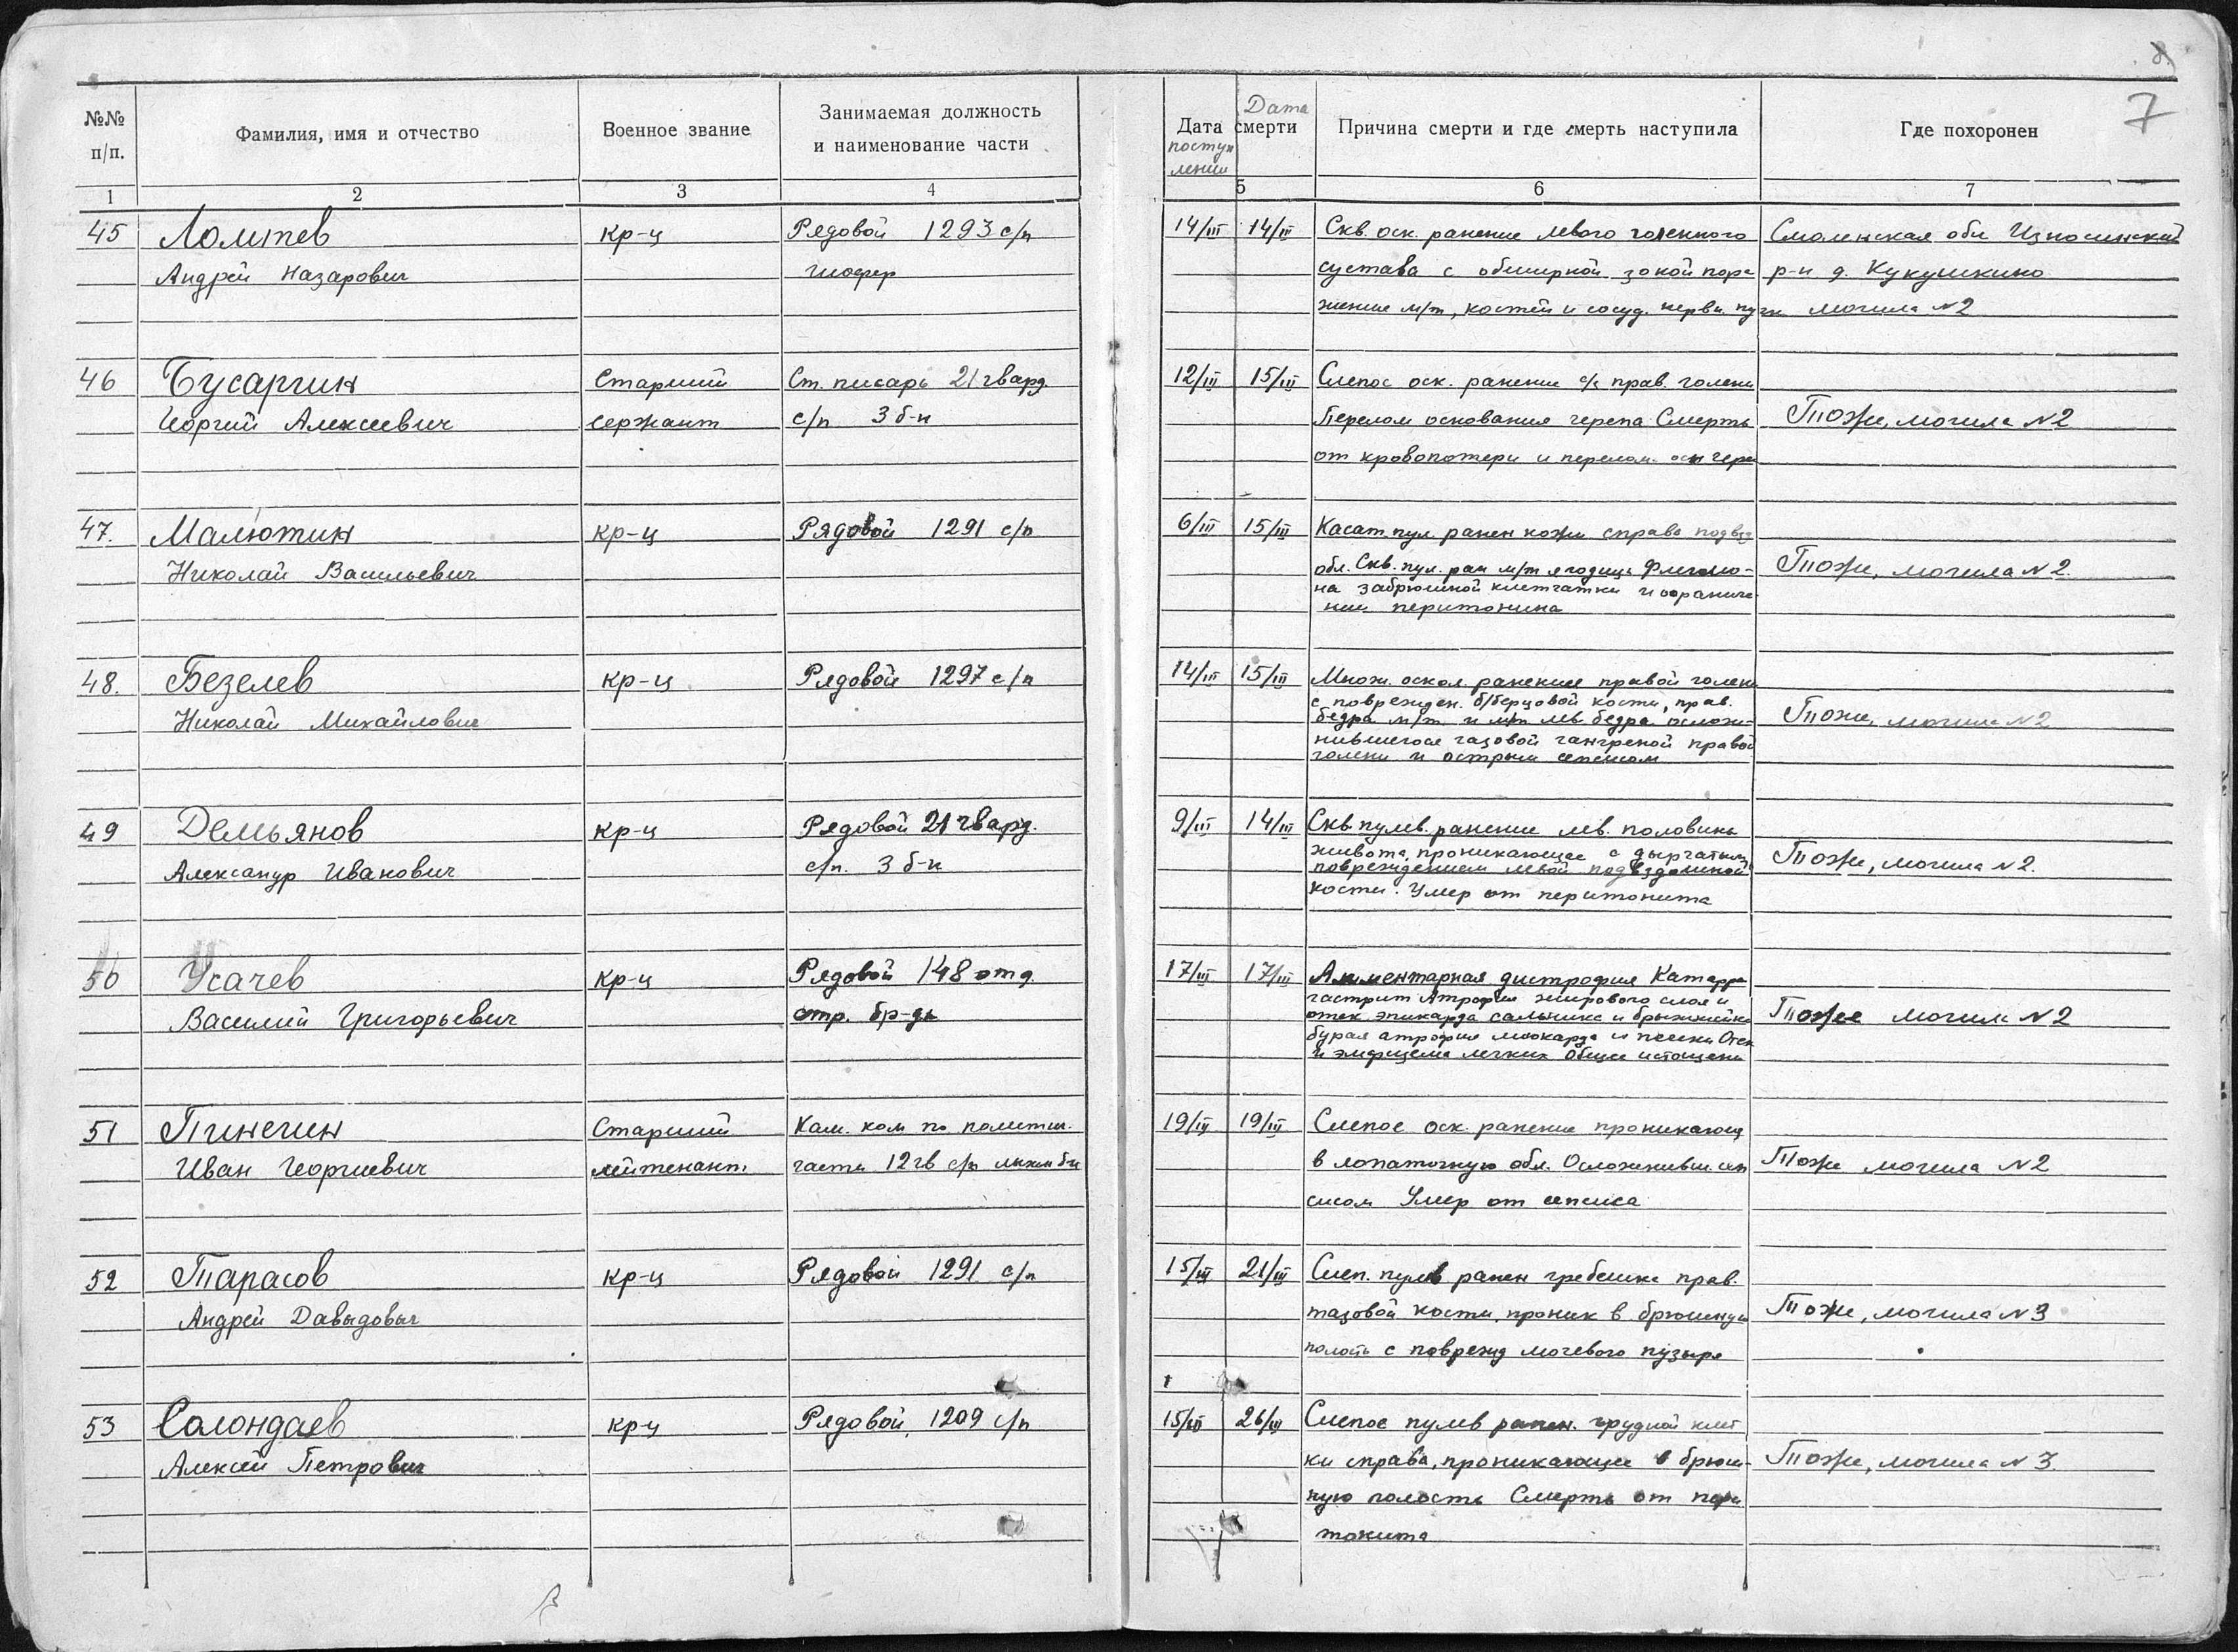 8.
7
№№ п/п.
Фамилия, имя и отчество
Военное звание
Занимаемая должность
и наименование части
Дата поступления
Дата смерти
Причина смерти и где смерть наступила
Где похоронен
1 2 3 4 5 6 7
45 Ломтев кр-ц Рядовой 1293 с/п 14/III 14/III Скв. оск. ранение левого голенного Смоленская обл Износинский
Андрей Назарович шофер сустава с обширной зоной пора р-н д. Кукушкино
жение м/т, костей и сосуд. нервн. пучк могила №2
46 Бусаргин Старший Ст. писарь 21 гвард. 12/III 15/III Слепое оск. ранение с/з прав. голени
Георгий Алексеевич сержант с/п 3 б-н Перелом основания черепа Смерть Тоже, могила №2
от кровопотери и перелом осн череп
47. Малютин кр-ц Рядовой 1291 с/п 6/III 15/III Касат. пул. ранен кожи справа подвзд
Николай Васильевич обл. Скв. пул. ран м/т ягодицы Флегмо- Тоже, могила №2.
на забрюшной клетчатки и ограниче
нии перитонина
48. Безелев кр-ц Рядовой 1297 с/п 14/III 15/III Множ. оскол. ранение правой голени
Николай Михайлович с поврежден. б/берцовой кости, прав.
бедра м/т и м/т лев. бедра осложн- Тоже, могила №2
нившегося газовой гангреной правой
голени и острым сепсисом
49 Демьянов кр-ц Рядовой 21 гвард. 9/III 14/III Скв. пулев. ранение лев. половины
Александр Иванович с/п. 3 б-н живота, проникающее с дырчатым Тоже, могила №2.
повреждением левой подвздошной
кости. Умер от перитонита
50 Усачев кр-ц Рядовой 148 отд. 17/III 17/III Алиментарная дистрофия Катарр
Василий Григорьевич стр. бр-ды гастрит Атрофия жирового слоя и
отек эпикарда сальника и брыжейки Тоже могила №2
бурая атрофия миокарда и печени Отек
и эмфизема легких Общее истощени
51 Пинегин Старший Кам. ком по политич. 19/III 19/III Слепое оск. ранение проникающ
Иван Георгиевич лейтенант части 12 гв с/п б-н в лопаточную обл. Осложнивш. сеп Тоже могила №2
сисом Умер от сепсиса
52 Тарасов кр-ц Рядовой 1291 с/п 15/III 21/III Слеп. пулев ранен гребешка прав.
Андрей Давыдович тазовой кости, проник в брюшную Тоже, могила №3
полость с поврежд мочевого пузыря
53 Солондаев кр-ц Рядовой, 1209 с/п 15/III 26/III Слепое пулев ранен. грудной клет
Алексей Петрович ки справа, проникающее в брюш- Тоже, могила №3.
ную полость Смерть от пери
тонита